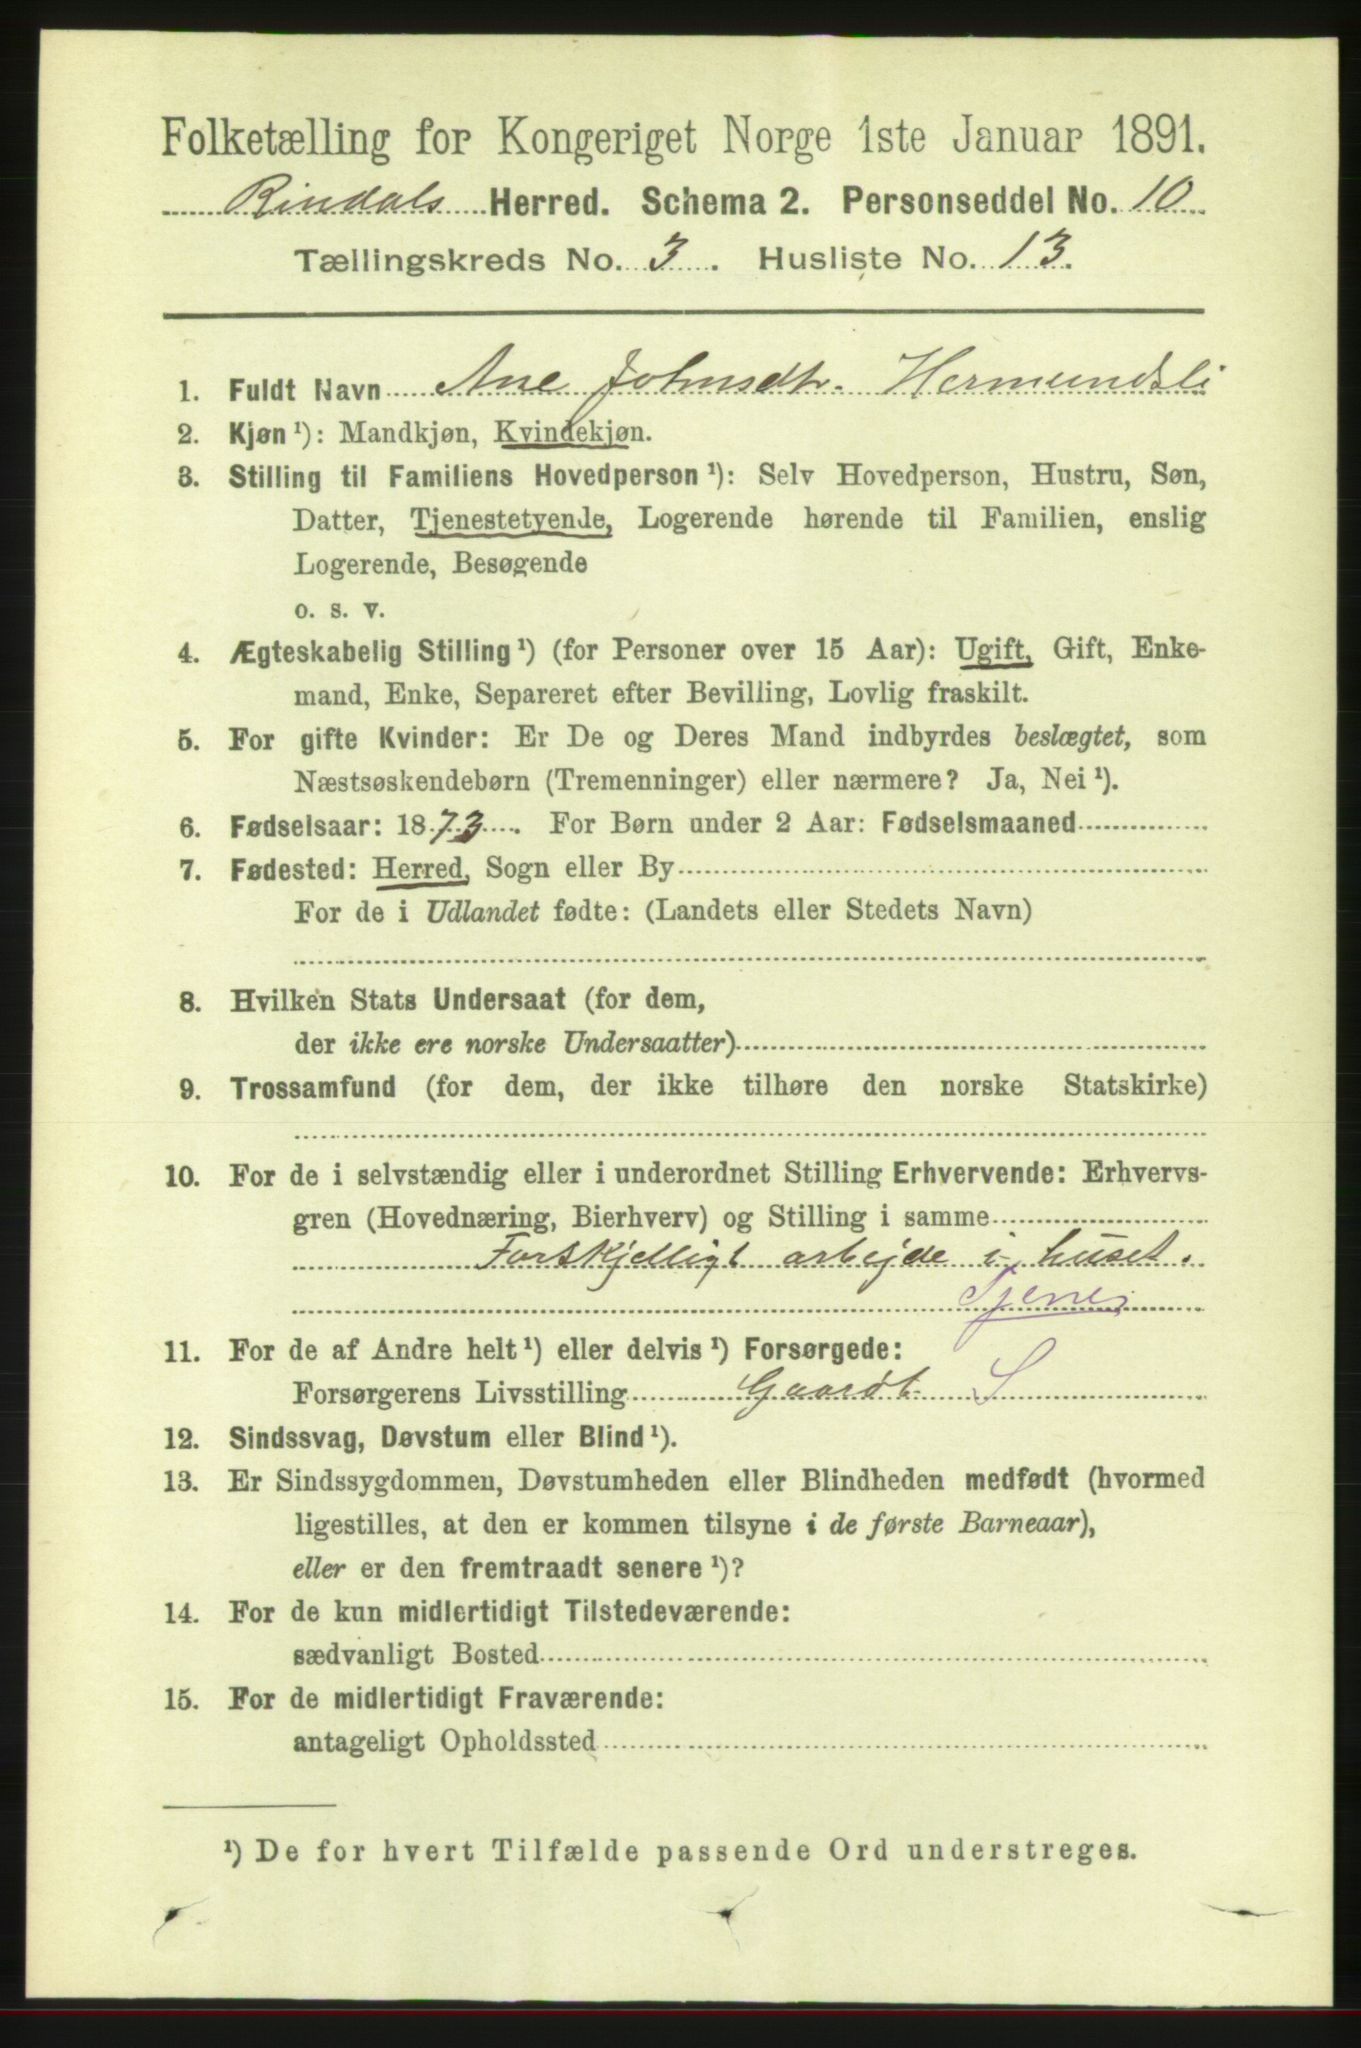 Folketælling for Kongeriget Norge 1ste Januar 1891.
Rindals Herred. Schema 2. Personseddel No. 10
Tællingskreds No. 3. Husliste No. 13.
1. Fuldt Navn Ane Johnsdtr. Hermundsli
2. Kjøn ¹): Mandkjøn, Kvindekjøn.
3. Stilling til Familiens Hovedperson ¹): Selv Hovedperson, Hustru, Søn,
Datter, Tjenestetyende, Logerende hørende til Familien, enslig
Logerende, Besøgende
o. s. v.
4. Ægteskabelig Stilling ¹) (for Personer over 15 Aar): Ugift, Gift, Enke-
mand, Enke, Separeret efter Bevilling, Lovlig fraskilt.
5. For gifte Kvinder: Er De og Deres Mand indbyrdes beslægtet, som
Næstsøskendebørn (Tremenninger) eller nærmere? Ja, Nei ¹).
6. Fødselsaar: 1873. For Børn under 2 Aar: Fødselsmaaned
7. Fødested: Herred, Sogn eller By
For de i Udlandet fødte: (Landets eller Stedets Navn)
8. Hvilken Stats Undersaat (for dem,
der ikke ere norske Undersaatter)
9. Trossamfund (for dem, der ikke tilhøre den norske Statskirke)
10. For de i selvstændig eller i underordnet Stilling Erhvervende: Erhvervs-
gren (Hovednæring, Bierhverv) og Stilling i samme
Forskjelligt arbejde i huset.
11. For de af Andre helt ¹) eller delvis ¹) Forsørgede:
Forsørgerens Livsstilling S
12. Sindssvag, Døvstum eller Blind ¹).
13. Er Sindssygdommen, Døvstumheden eller Blindheden medfødt (hvormed
ligestilles, at den er kommen tilsyne i de første Barneaar),
eller er den fremtraadt senere ¹)?
14. For de kun midlertidigt Tilstedeværende:
sædvanligt Bosted
15. For de midlertidigt Fraværende:
antageligt Opholdssted
¹) De for hvert Tilfælde passende Ord understreges.